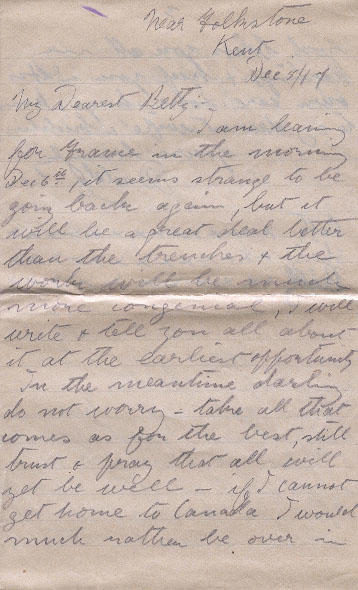 Near Folkstone
Kent
Dec 5/17
My Dearest Betty:-
I am leaving
for France in the morning
Dec 6th, it seems strange to be
going back again, but it
will be a great deal better
than the trenches & the
work will be much
more congenial, I will
write & tell you all about
it at the earliest opportunity
In the meantime darling
do not worry - take all that
comes as for the best, still
trust & pray that all will
yet be well - if I cannot
get home to Canada I would
much rather be over in